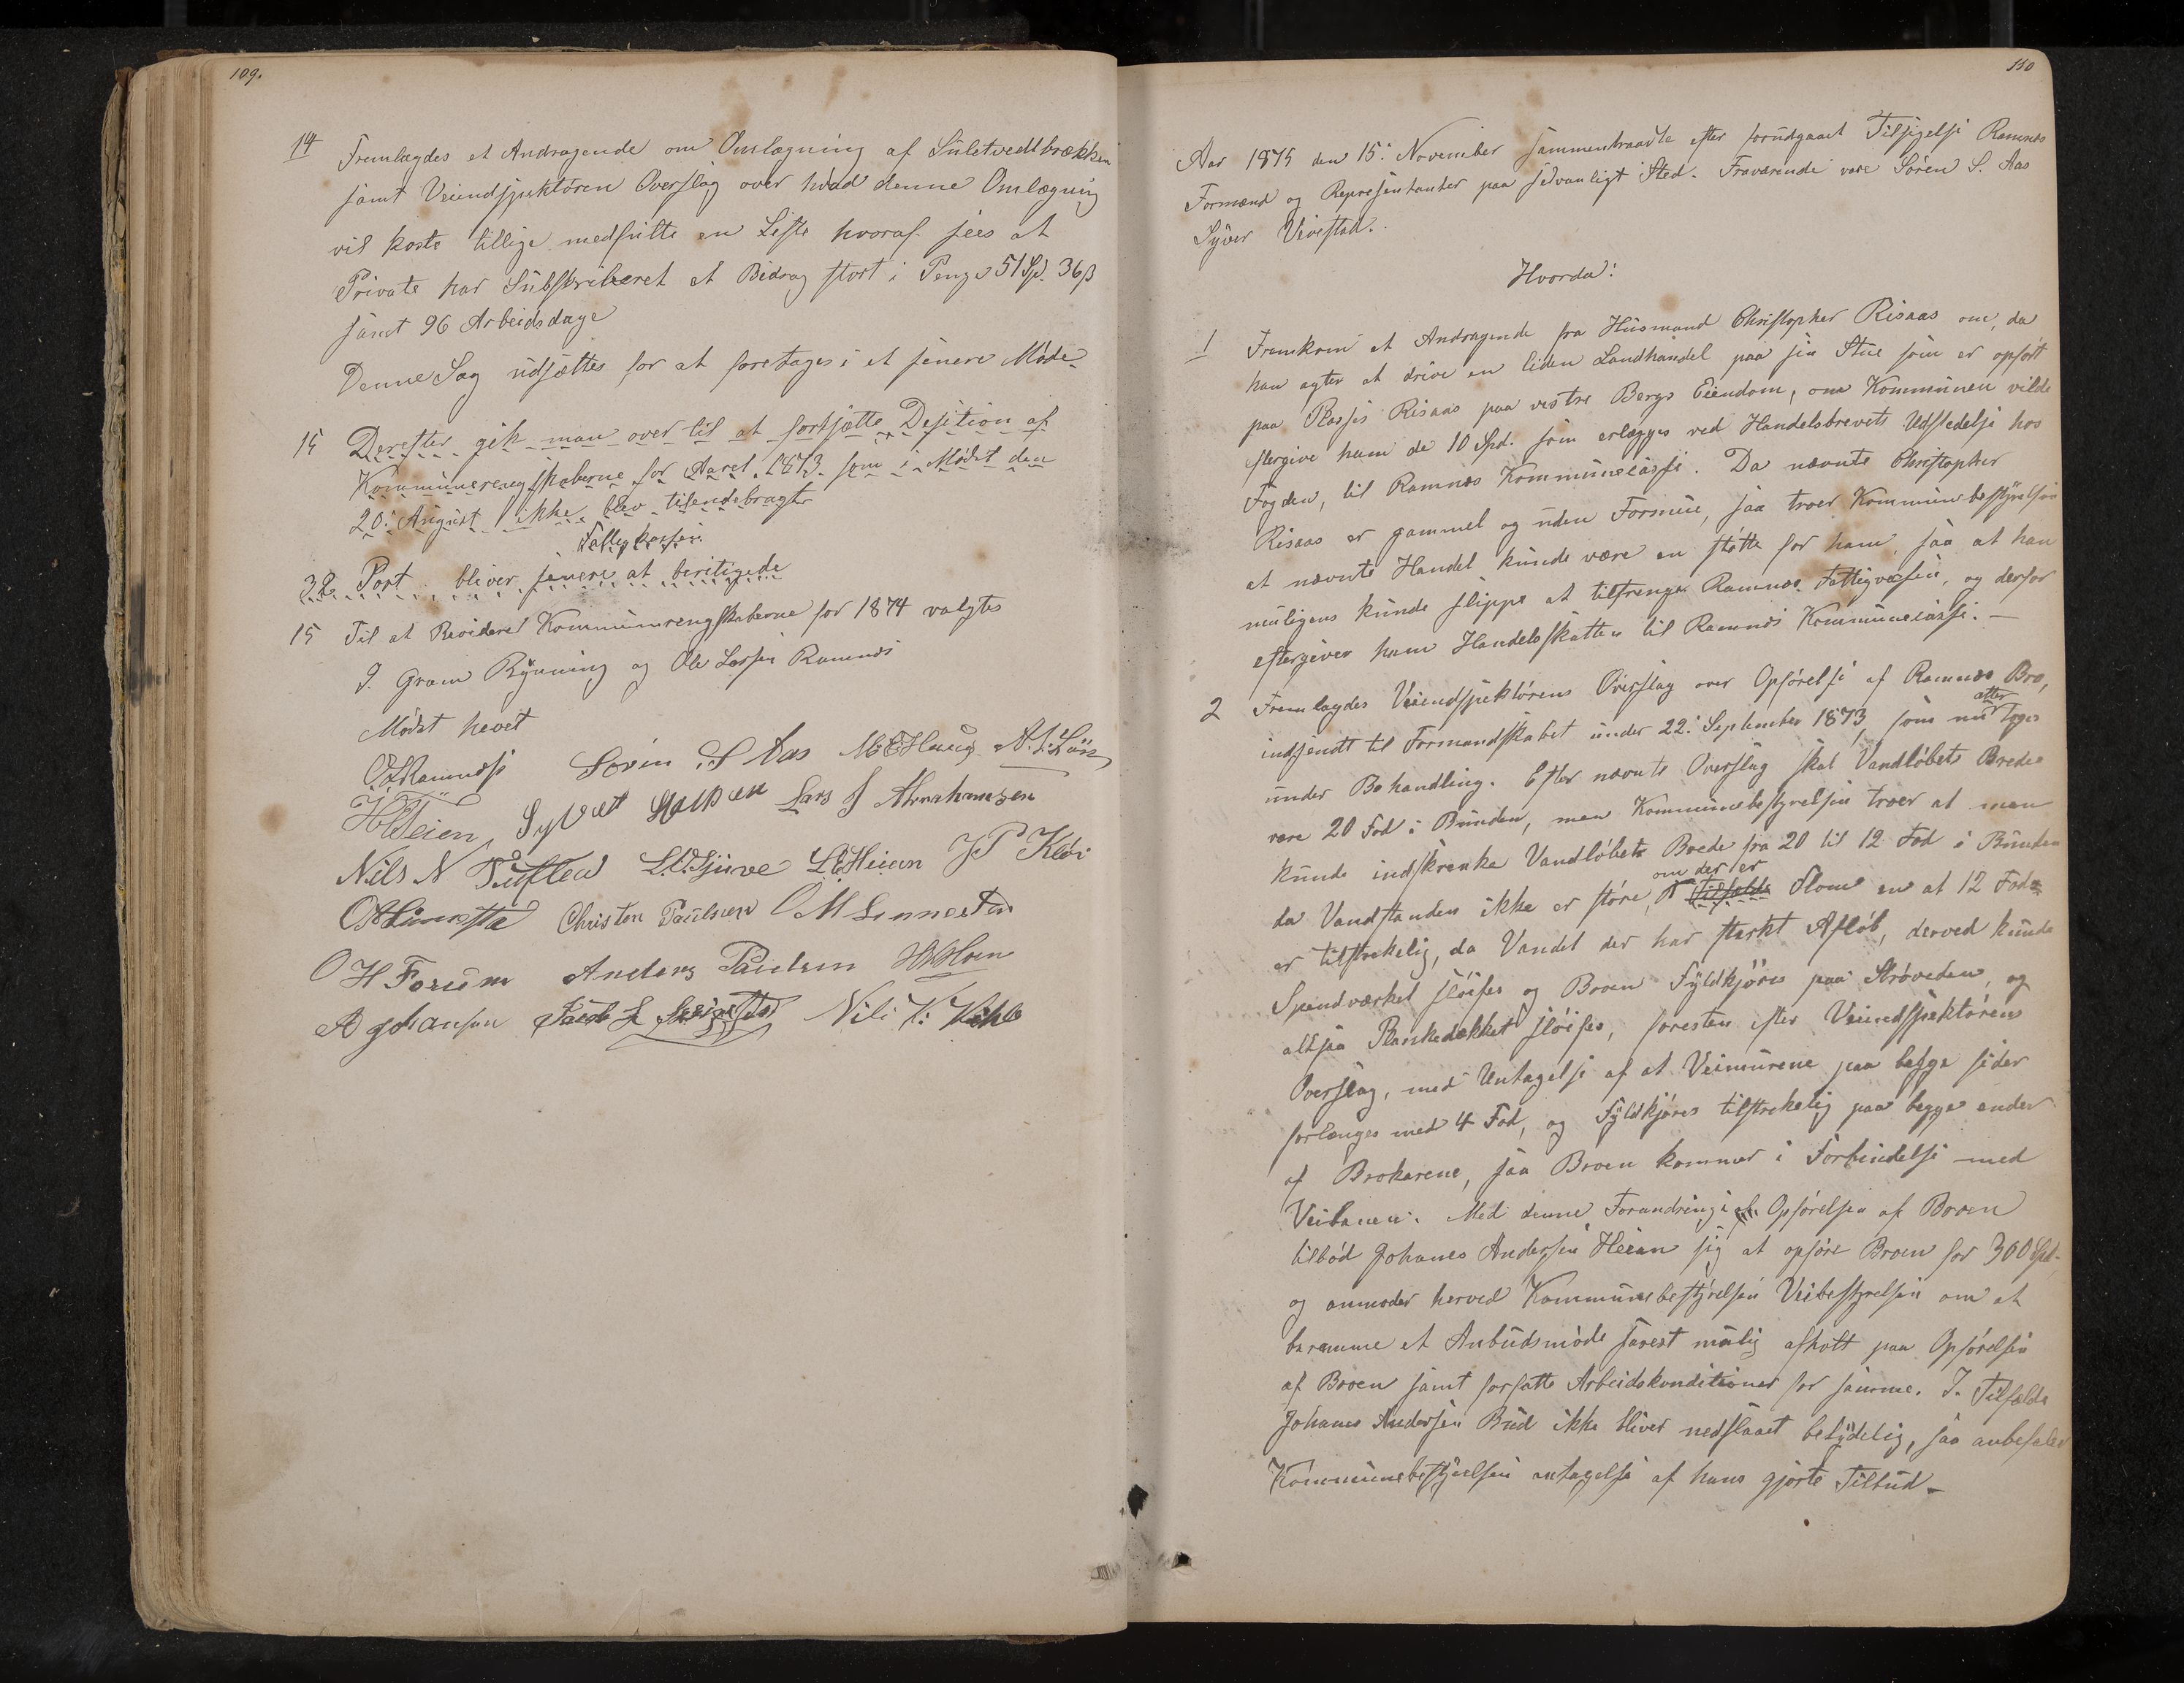 109.
14 Fremlagdes et Andragende om Omlægning af Suletvedtbrækken
samt Veiendspektören Overslag over hvad denne Omlægning
vil koste tillige medfulte en Liste hvoraf sees at
Private har Subskriberet et Bidrag stort i Penge 51 Spd. 36 β
samt 96 Arbeidsdage
Denne Sag udsættes for at foretages i et senere Möde.
15 Derefter gik man over til at fortsætte Desition af
Kommuneregnskaberne for Aaret 1873 som i Mödet den
20: August ikke blev tilendebragt
Fattigkassen
32 Post. bliver senere at beritigede
15 Til at Revidere Kommunerengskaberne for 1874 valgtes
J. Gram Rynning og Ole Larsen Ramnæs
Mödet hevet
O Ramnæs Sören S Aas M E Haug
H Teien, Lars J Abrahamsen
Nils N Tufteu L E Heian J P Klöi
Christen Paulsen O M Linnestad
O H Forum Anders Paulsen
A Johansen Nils K:
110
Aar 1875 den 15: November sammentraadte efter forudgaaet Tilsigelse Ramnæs
Formænd og Representanter paa sedvanligt Sted. Fraværende vare Sören S. Aas
Syver Vivestad.
Hvorda:
1 Fremkom et Andragende fra Husmand Christopher Risaas om, da
han agter at drive en liden Landhandel paa sin Stue som er opfört
paa Plassen Risaas paa vestre Bergs Eiendom, om Kommunen vilde
eftergive ham de 10 Spd. som erlægges ved Handelsbrevets Udstedelse hos
Fogden, til Ramnæs Kommunecasse. Da nævnte Christopher
Risaas er gammel og uden Formue, saa troer Kommunebestyrelsen
at nævnte Handel kunde være en stötte for ham, saa at han
muligens kunde slippe at tiltrenge Ramnæs Fattigvæsen, og derfor
eftergiver ham Handelsskatten til Ramnæs Kommunecasse. —
2 Fremlagdes Veiendspektörens Overslag over Opförelse af Ramnæs Bro,
indsendt til Formandskabet under 22: September 1873, som nu atter toges
under Behandling. Efter nævnte Overslag skal Vandlöbets Brede
vere 20 Fod i Bunden, men Kommunebestyrelsen troer at man
kunde indskrenke Vandlöbets Brede fra 20 til 12 Fod i Bunden
da Vandstanden ikke er störe, om der er tilfelde Flom en at 12 Fod
er tilstrekelig, da Vandet der har sterkt Aflöb, derved kunde
Spendværket slöifes og Broen Fyldkjöres paa Ströveden, og
altsaa Plankedækket slöifes, foresten efter Veiendspektörens
Overslag, med Untagelse af at Veimurene paa begge sider
forlænges med 4 Fod, og Fyldkjöres tilstrekelig paa begge ender
af Brokarene, saa Broen kommer i Forbindelse med
Veibanen. Med denne Forandring i af Opförelsen af Broen
tilböd Johanes Andersen Heian sig at opföre Broen for 300 Spd.
og anmoder herved Kommunebestyrelsen Veibestyrelsen om at
beramme et Anbudsmöde snarest mulig afholt paa Opförelsen
af Broen samt forfatte Arbeidskonditioner for samme. I Tilfælde
Johanes Andersen Bud ikke bliver nedslaaet betydelig, saa anbefaler
Kommunebestyrelsen antagelse af hans gjorte Tilbud —